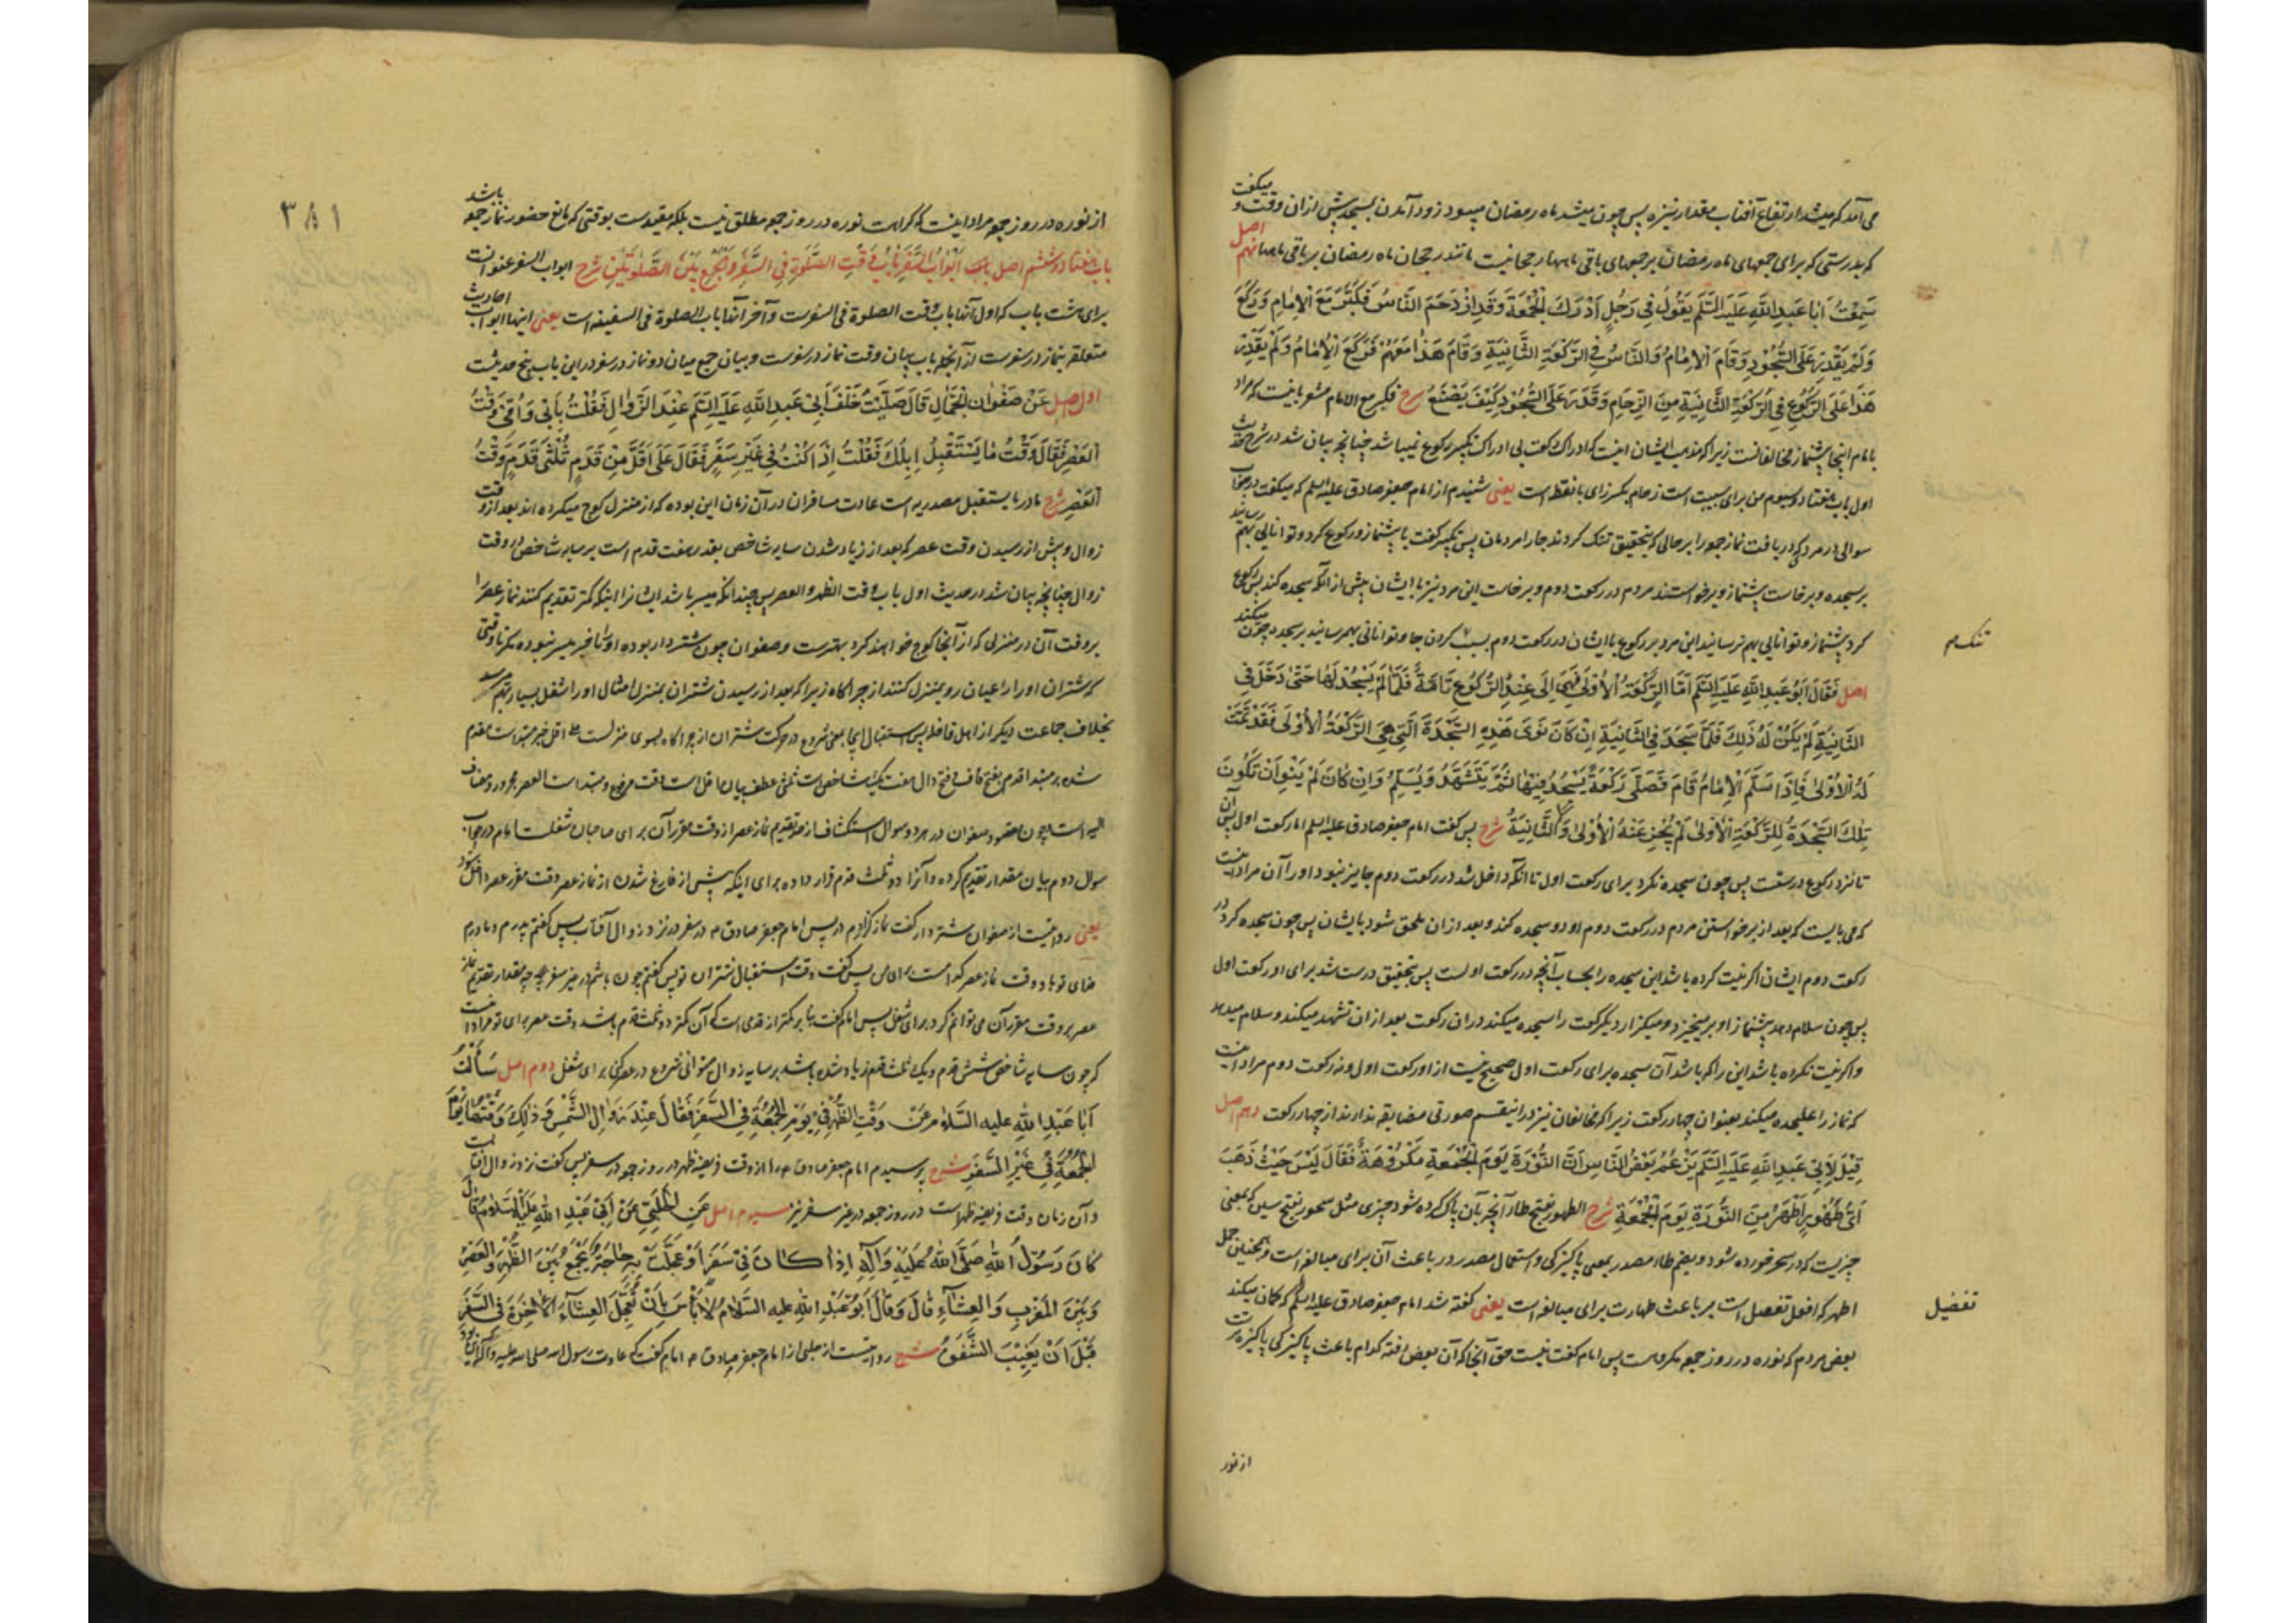 می آمد که میشد ارتفاع آفتاب مقدار نیزه پس چون میشد ماه رمضان میبود زود آمدن بمسجد پیش ازان وقت و میکفت
که بدرستی که برای جمعهای ماه رمضان بر جمعهای باقی ماهها رجحانیست مانند رجحان ماه رمضان بر باقی ماهها نهم اصل
سَمِعْتُ اَبا عَبدِ اللهِ عَلَیهِ السَّلَم یَقُولُ فی رَجُلٍ اَدْرَكَ الْجُمْعَةَ وَقَدِ ازْدَحَمَ النّاسُ فَکَبَّرَ مَعَ الْاِمامِ وَرَکَعَ
وَلَمْ یَقْدِرْ عَلَی السُّجُودِ وَقامَ الْاِمامُ وَالنّاسُ فِی الرَّکْعَةِ الثّانِیَةِ وَقامَ هٰذا مَعَهُمْ فَرَکَعَ الْاِمامُ وَلَمْ یَقْدِرْ
هٰذا عَلَی الرُّکُوعِ فِی الرَّکْعَةِ الثّانِیَةِ مِنَ الزِّحامِ وَقَدَرَ عَلَی السُّجُودِ کَیْفَ یَصْنَعُ شرح فکبر مع الامام مشعر باینست که مراد
بامام اینجا پیشنماز مخالفانست زیرا که مذهب ایشان اینست که ادراک رکعت بی ادراک تکبیر رکوع نمیباشد چنانچه بیان شد در شرح حدیث
اول باب هفتاد و سیوم من برای سببیت است زحام بکسر زای با نقطه است یعنی شنیدم از امام جعفر صادق علیه السلم که میکفت در جواب
سوالی در مردی که دریافت نماز جمعه را بر حالی که بتحقیق تنک کردند جا را مردمان پس تکبیر کفت با پیشنماز و رکوع کرد و توانایی بهم رسانید
بر سجده و برخاست پیشنماز و برخواستند مردم در رکعت دوم و برخاست این مرد نیز با ایشان پیش از آنکه سجده کند پس رکوع
کرد پیشنماز و توانایی بهم نرسانید این مرد بر رکوع با ایشان در رکعت دوم بسبب کردن جا و توانائی بهم رسانید بر سجده چون میکند
تنک م
اصل فَقالَ اَبُو عَبدِ اللهِ عَلَیهِ السَّلَم اَمَّا الرَّکْعَةُ الْاُولٰی فَهِیَ اِلٰی عِنْدِ الرُّکُوعِ تامَّةٌ فَلَمّا لَمْ یَسْجُدْ لَها حَتّٰی دَخَلَ فِی
الثّانِیَةِ لَمْ یَکُنْ لَهُ ذٰلِكَ فَلَمّا سَجَدَ فِی الثّانِیَةِ اِنْ کانَ نَوٰی هٰذِهِ السَّجْدَةَ الَّتی هِیَ الرَّکْعَةُ الْاُولٰی فَقَدْ تَمَّتْ
لَهُ الْاُولٰی فَاِذا سَلَّمَ الْاِمامُ قامَ فَصَلّٰی رَکْعَةً یَسْجُدُ فیها ثُمَّ یَتَشَهَّدُ وَیُسَلِّمُ وَاِنْ کانَ لَمْ یَنْوِ اَنْ تَکُونَ
تِلْكَ السَّجْدَةُ لِلرَّکْعَةِ الْاُولٰی لَمْ تُجْزِ عَنْهُ الْاُولٰی وَلَا الثّانِیَةُ شرح پس کفت امام جعفر صادق علیه السلم اما رکعت اول پس آن
تا نزد رکوع درستست پس چون سجده نکرد برای رکعت اول تا آنکه داخل شد در رکعت دوم جایز نبود او را آن مراد اینست
که می بایست که بعد از برخواستن مردم در رکعت دوم او دو سجده کند و بعد ازان ملحق شود بایشان پس چون سجده کرد در
رکعت دوم ایشان اکر نیت کرده باشد این سجده را بحساب آنچه در رکعت اولست پس بتحقیق درست شد برای او رکعت اول
پس چون سلام دهد پیشنماز او بر میخیزد و میکزارد یکرکعت را سجده میکند دران رکعت بعد ازان تشهد میکند و سلام میدهد
و اکر نیت نکرده باشد این را که باشد آن سجده برای رکعت اول صحیح نیست از او رکعت اول و نه رکعت دوم مراد اینست
که نماز را علیحده میکند بعنوان چهار رکعت زیرا که مخالفان نیز در اینقسم صورتی مضایقه ندارند از چهار رکعت دهم اصل
قِیلَ لِاَبی عَبدِ اللهِ عَلَیهِ السَّلَم یَزْعُمُ بَعْضُ النّاسِ اَنَّ النُّورَةَ یَوْمَ الْجُمْعَةِ مَکْرُوهَةٌ فَقالَ لَیْسَ حَیْثُ ذَهَبَ
اَیُّ طَهُورٍ اَطْهَرُ مِنَ النُّورَةِ یَوْمَ الْجُمْعَةِ شرح الطهور بفتح طاء آنچه بآن پاک کرده شود چیزی مثل سحور بفتح سین که بمعنی
چیزیست که در سحر خورده شود و بضم طاء مصدر بمعنی پاکیزکی و استعمال مصدر در باعث آن برای مبالغه است و همچنین حمل
اطهر که افعل تفصیل است بر باعث طهارت برای مبالغه است یعنی کفته شد امام جعفر صادق علیه السلم که کمان میکند
تفضیل
بعض مردم که نوره در روز جمعه مکروهست پس امام کفت نیست حق آنجا که آن بعض رفته کدام باعث پاکیزکی پاکیزه ترست
از نور
۳۸۱
از نوره در روز جمعه مراد اینست که کراهت نوره در روز جمعه مطلق نیست بلکه مقیدست بوقتی که مانع حضور نماز جمعه باشد
باب هفتاد و ششم اصل باب اَبْوابُ السَّفَرِ بابُ وَقْتِ الصَّلٰوةِ فِی السَّفَرِ وَالْجَمْعِ بَیْنَ الصَّلٰوتَیْنِ شرح ابواب السفر عنوانست
برای هشت باب که اول آنها باب وقت الصلوة فی السفرست و آخر آنها باب الصلوة فی السفینه است یعنی اینها ابواب احادیث
متعلقه بنماز در سفرست از آنجمله باب بیان وقت نماز در سفرست و بیان جمع میان دو نماز در سفر در این باب پنج حدیثست
اول اصل عَنْ صَفْوانَ الْجَمّالِ قالَ صَلَّیْتُ خَلْفَ اَبی عَبدِ اللهِ عَلَیهِ السَّلَم عِنْدَ الزَّوالِ فَقُلْتُ بِاَبی وَاُمّی وَقْتُ
الْعَصْرِ فَقالَ وَقْتُ ما یَسْتَقْبِلُ اِبِلَكَ فَقُلْتُ اِذا کُنْتُ فی غَیْرِ سَفَرٍ فَقالَ عَلٰی اَقَلَّ مِنْ قَدَمٍ ثُلْثَیْ قَدَمٍ وَقْتُ
الْعَصْرِ شرح ما در ما یستقبل مصدریه است عادت مسافران در آن زمان این بوده که از منزل کوچ میکرده اند بعد از وقت
زوال و پیش از رسیدن وقت عصر که بعد از زیاد شدن سایه شاخص بقدر هفت قدم است بر سایه شاخص در وقت
زوال چنانچه بیان شد در حدیث اول باب وقت الظهر و العصر پس چندانکه میسر باشد ایشانرا اینکه کمتر تقدیم کنند نماز عصر را
بر وقت آن در منزلی که از آنجا کوچ خواهند کرد بهترست و صفوان چون شتردار بوده او را تاخیر میسر نبوده مکر تا وقتی
که شتران او را راعیان رو بمنزل کنند از چراکاه زیرا که بعد از رسیدن شتران بمنزل امثال او را شغل بسیار بهم میرسد
بخلاف جماعت دیکر از اهل قافله پس استقبال اینجا بمعنی شروع در حرکت شتران از چراکاه بسوی منزلست علی اقل خبر مبتداست مقدم
شده بر مبتدا قدم بفتح قاف و فتح دال هفت یک شاخص است ثلثی عطف بیان اقل است وقت مرفوع و مبتداست العصر مجرور و مضاف
الیه است چون مقصود صفوان در هر دو سوال استکشاف از حد تقدیم نماز عصر از وقت مقرر آن برای صاحبان شغلست امام در جواب
سوال دوم بیان مقدار تقدیم کرده و آنرا دو ثلث قدم قرار داده برای اینکه پیش از فارغ شدن از نماز عصر وقت مقرر عصر داخل شود
یعنی روایتست از صفوان شتردار کفت نماز کزاردم در پس امام جعفر صادق م در سفر در نزد زوال آفتاب پس کفتم پدرم و مادرم
فدای تو باد وقت نماز عصر کدامست برای من پس کفت وقت استقبال شتران تو پس کفتم چون باشم در غیر سفر بچه مقدار تقدیم نماز
عصر بر وقت مقرر آن می توانم کرد برای شغل پس امام کفت بنا بر کمتر از قدمی است که آن کمتر دو ثلث قدم باشد وقت عصر برای تو مراد اینست
که چون سایه شاخص شش قدم و یک ثلث قدم زیاد شده باشد بر سایه زوال میتوانی شروع در عصر کنی برای شغل دوم اصل سَأَلْتُ
اَبا عَبْدِ اللهِ علیه السَّلام عَنْ وَقْتِ الظُّهْرِ فی یَوْمِ الْجُمُعَةِ فِی السَّفَرِ فَقالَ عِنْدَ زَوالِ الشَّمْسِ وَذٰلِكَ وَقْتُها یَوْمَ
الْجُمُعَةِ فی غَیْرِ السَّفَرِ شرح پرسیدم امام جعفر صادق م را از وقت فریضه ظهر در روز جمعه در سفر پس کفت نزد زوال آفتاب است
و آن زمان وقت فریضه ظهر است در روز جمعه در غیر سفر نیز سیوم اصل عَنِ الْحَلَبِیِّ عَنْ اَبی عَبْدِ اللهِ عَلَیْهِ السَّلامُ قالَ
کانَ رَسُولُ اللهِ صَلَّی اللهُ عَلَیْهِ وَآلِهِ اِذا کانَ فی سَفَرٍ اَوْ عَجَّلَتْ بِهِ حاجَةٌ یَجْمَعُ بَیْنَ الظُّهْرِ وَالْعَصْرِ
وَبَیْنَ الْمَغْرِبِ وَالْعِشآءِ قالَ وَقالَ اَبُو عَبْدِ اللهِ علیه السَّلامُ لا بَأْسَ بِاَنْ تُعَجِّلَ الْعِشآءَ الْآخِرَةَ فِی السَّفَرِ
قَبْلَ اَنْ یَغِیْبَ الشَّفَقُ شرح روایتست از حلبی از امام جعفر صادق م امام کفت که عادت رسول الله صلی الله علیه و آله این بود